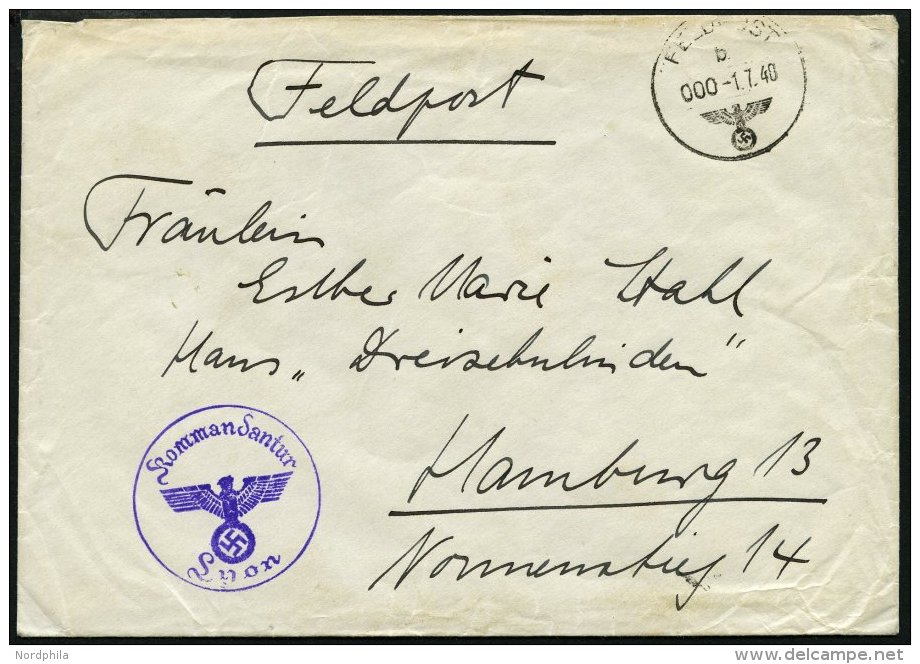 FELDPOST
b
000 -1.7.40
Feldpost
Fräulein
Esther Marie Stahl
Haus „Dreizehnlinden"
Hamburg 13
Nonnenstieg 14
Kommandantur
Lyon
Nordphila
delcampe.net